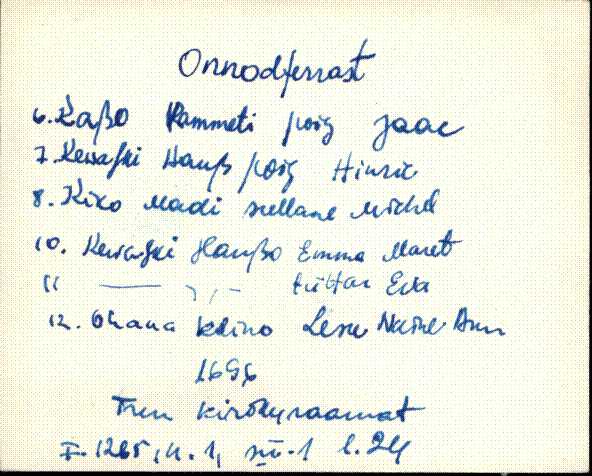 Onnodferrast
6. Kaßo Rammeti poig Jaac
7. Kewaski Hanß poig Hinric
8. Kiko Madi sullane Michel
10. Kewaski Hanßo Emma Maret
11 — „ — tüttar Eva
12. Ohana Leine Ann
1696
kirikuraamat
F. 1265, n. 1, sü. 1 l. 24